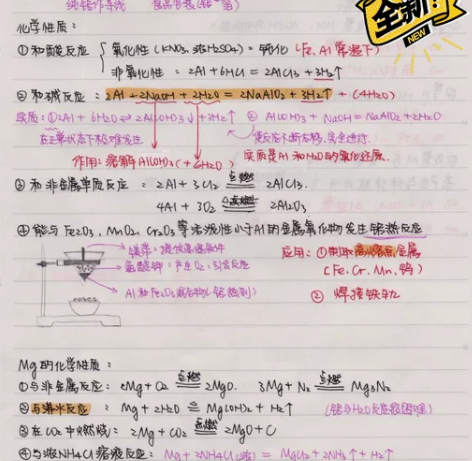 纯铝作导线 食品包装(铝箔)
全新!
NEW
化学性质:
①和酸反应 氧化性(KNO3,浓H2SO4)=钝化(Fe,Al常温下)
非氧化性:2Al+6HCl=2AlCl3+3H2↑
②和碱反应:2Al+2NaOH+2H2O=2NaAlO2+3H2↑(4H2O)
实质:①2Al+6H2O⇌2Al(OH)3↓+3H2↑ ②Al(OH)3+NaOH=NaAlO2+2H2O
在正常状态下极难发生 使反应不断右移,完全进行.
作用:溶解Al(OH)3(+6H2O) 实质是Al和H2O的氧化还原.
③和非金属单质反应:2Al+3Cl2 点燃 2AlCl3.
4Al+3O2 点燃 2Al2O3.
④能与Fe2O3,MnO2,Cr2O3等活泼性小于Al的金属氧化物发生铝热反应
镁条:提供高温条件
氯酸钾:产生O2,引发反应
Al和Fe2O3混合物(铝热剂)
应用:①制取高熔点金属
(Fe,Cr,Mn,钨)
②焊接铁轨
Mg的化学性质:
①与非金属反应:2Mg+O2 点燃 2MgO. 3Mg+N2 点燃 Mg3N2
②与沸水反应:Mg+2H2O ≜ Mg(OH)2+H2↑ (铝与H2O反应很困难)
③在CO2中燃烧:2Mg+CO2 点燃 2MgO+C
④与浓NH4Cl溶液反应:Mg+2NH4Cl(浓)=MgCl2+2NH3↑+H2↑